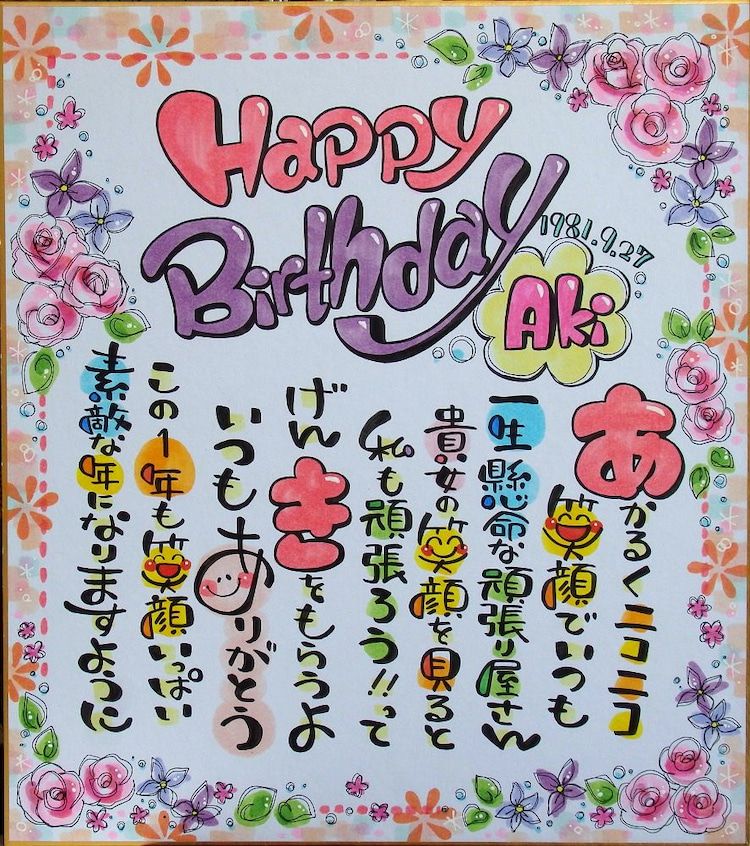 Happy
Birthday
1981.9.27
Aki
あかるくニコニコ
笑顔でいつも
一生懸命な頑張り屋さん
貴女の笑顔を見ると
私も頑張ろう!!って
げんきをもらうよ
いつもありがとう
この1年も笑顔いっぱい
素敵な年になりますように